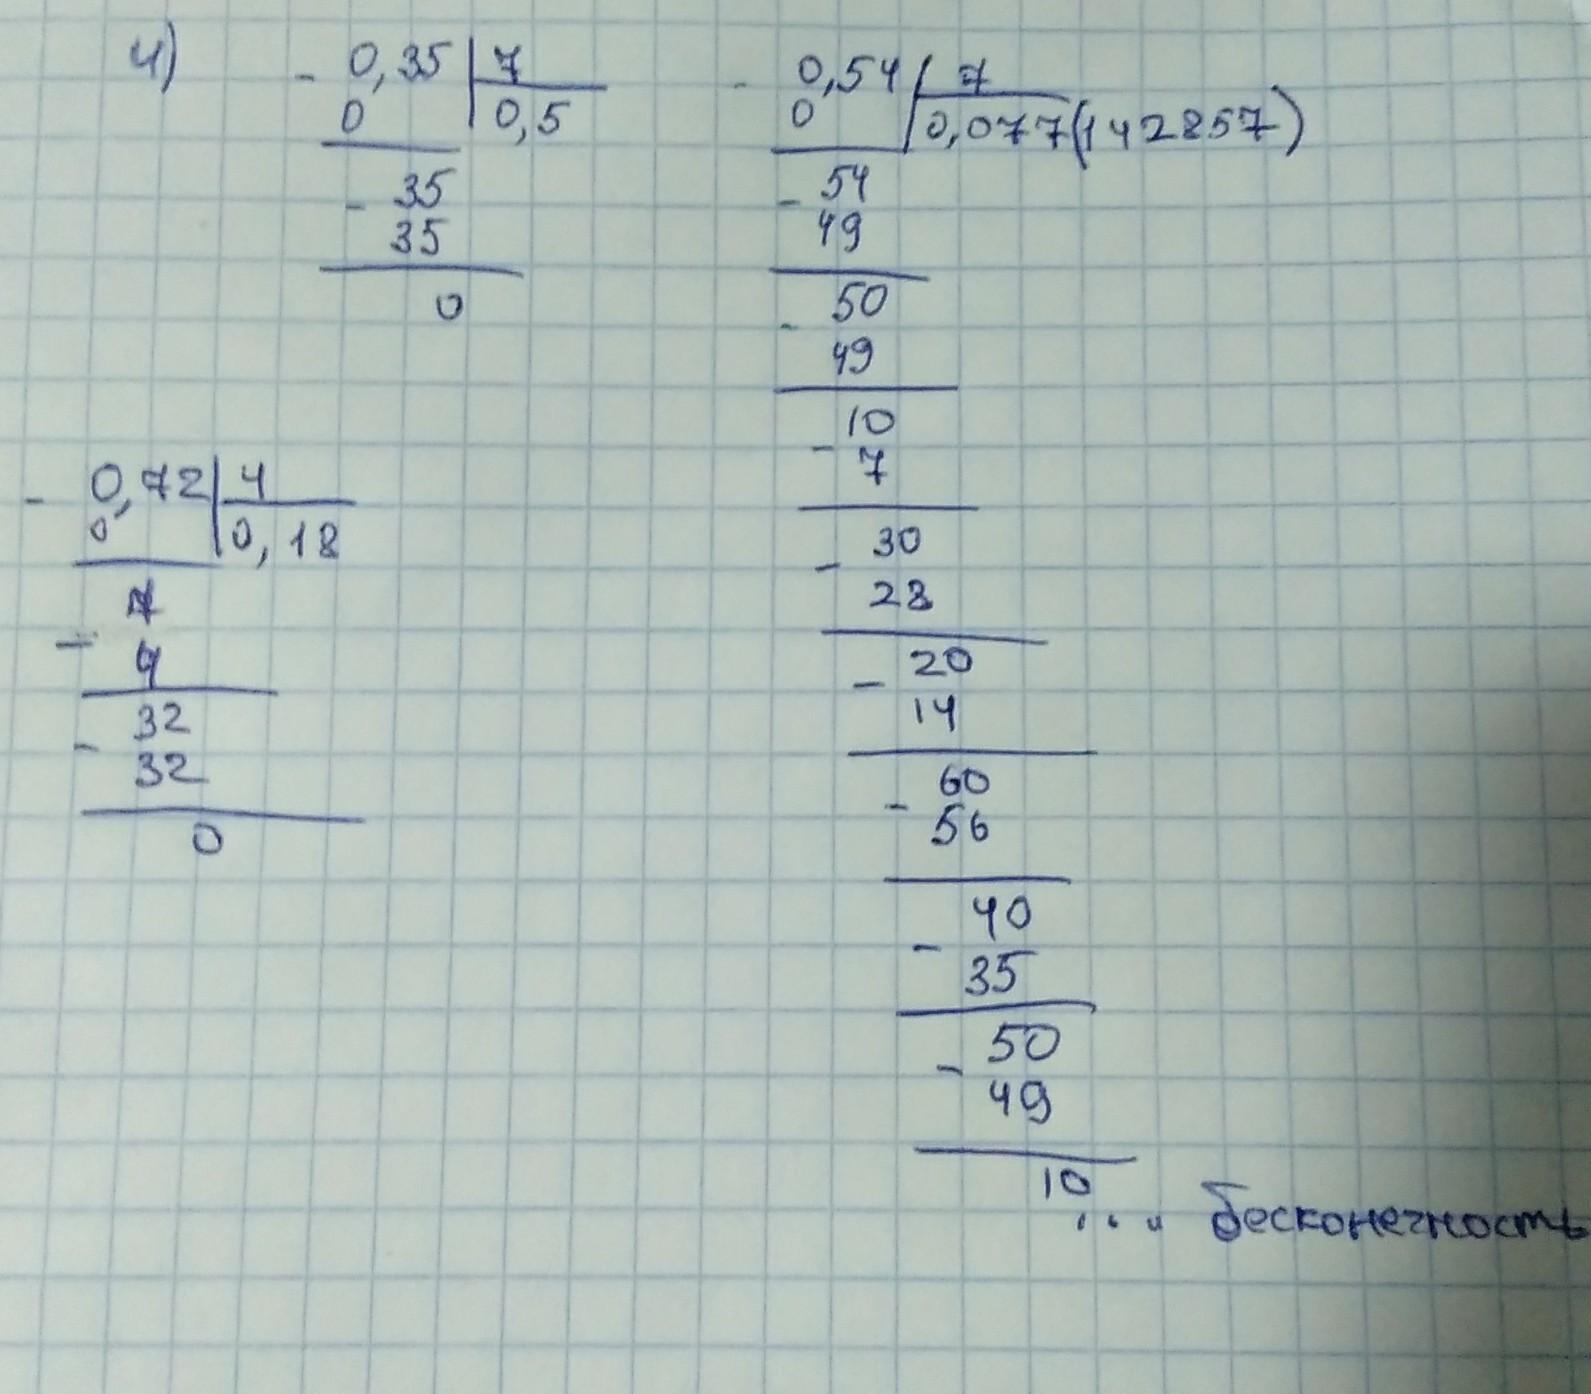 4)
- 0,35 | 7
0 | 0,5
- 35
35
0
- 0,54 | 7
0 | 0,077(142857)
- 54
49
- 50
49
- 10
7
- 30
28
- 20
14
- 60
56
- 40
35
- 50
49
10
.... бесконечность
- 0,72 | 4
0 | 0,18
- 7
4
- 32
32
0